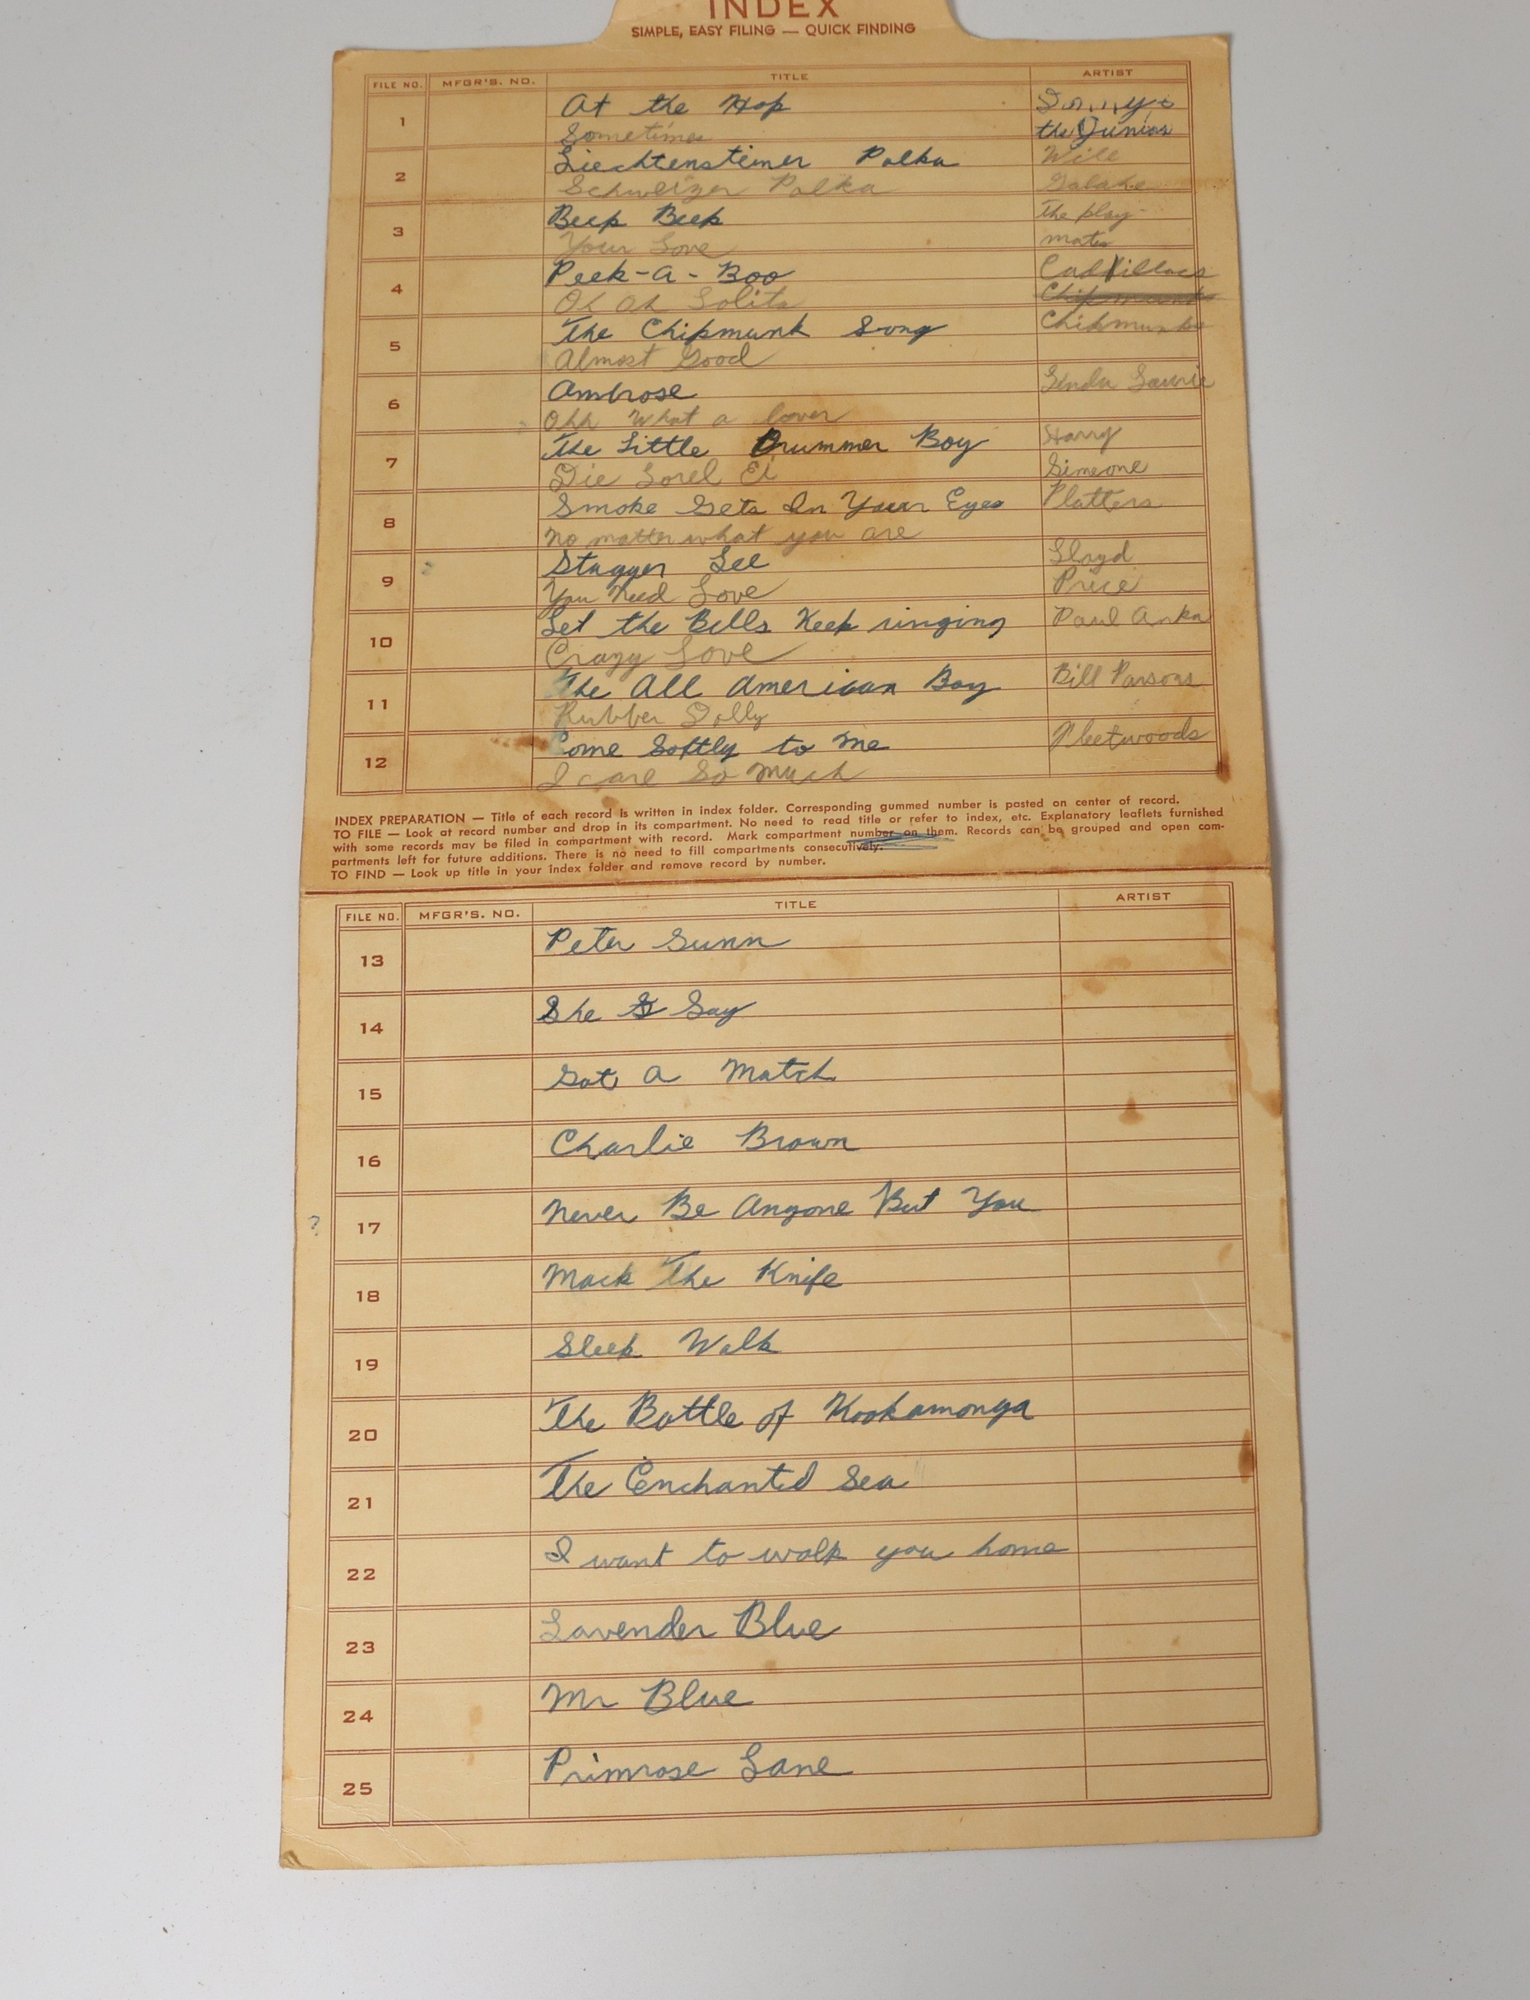 INDEX
SIMPLE, EASY FILING — QUICK FINDING
FILE NO. MFGR'S. NO. TITLE ARTIST
1 At the Hop
Sometimes the Junias
2 Liechtensteiner Polka Will
Schweizer Polka Galahe
3 Beep Beep The play-
Your Love mates
4 Peek-a-Boo Cadillacs
Oh Oh Lolita Chipmunks
5 The Chipmunk Song Chipmunks
Almost Good
6 Ambrose Linda Laurie
Ohh What a lover
7 The Little Drummer Boy Harry
Die Lorel Ei Simeone
8 Smoke Gets In Your Eyes Platters
No matter what you are
9 Stagger Lee Lloyd
You Need Love Price
10 Let the Bells Keep ringing Paul Anka
Crazy Love
11 The All American Boy Bill Parsons
Rubber Dolly
12 Come Softly to Me Fleetwoods
I care So Much
INDEX PREPARATION — Title of each record is written in index folder. Corresponding gummed number is pasted on center of record.
TO FILE — Look at record number and drop in its compartment. No need to read title or refer to index, etc. Explanatory leaflets furnished
with some records may be filed in compartment with record. Mark compartment number on them. Records can be grouped and open com-
partments left for future additions. There is no need to fill compartments consecutively.
TO FIND — Look up title in your index folder and remove record by number.
FILE NO. MFGR'S. NO. TITLE ARTIST
13 Peter Gunn
14 She Say
15 Got a Match
16 Charlie Brown
? 17 Never Be Anyone But You
18 Mack The Knife
19 Sleep Walk
20 The Battle of Kookamonga
21 The Enchanted Sea
22 I want to walk you home
23 Lavender Blue
24 Mr Blue
25 Primrose Lane